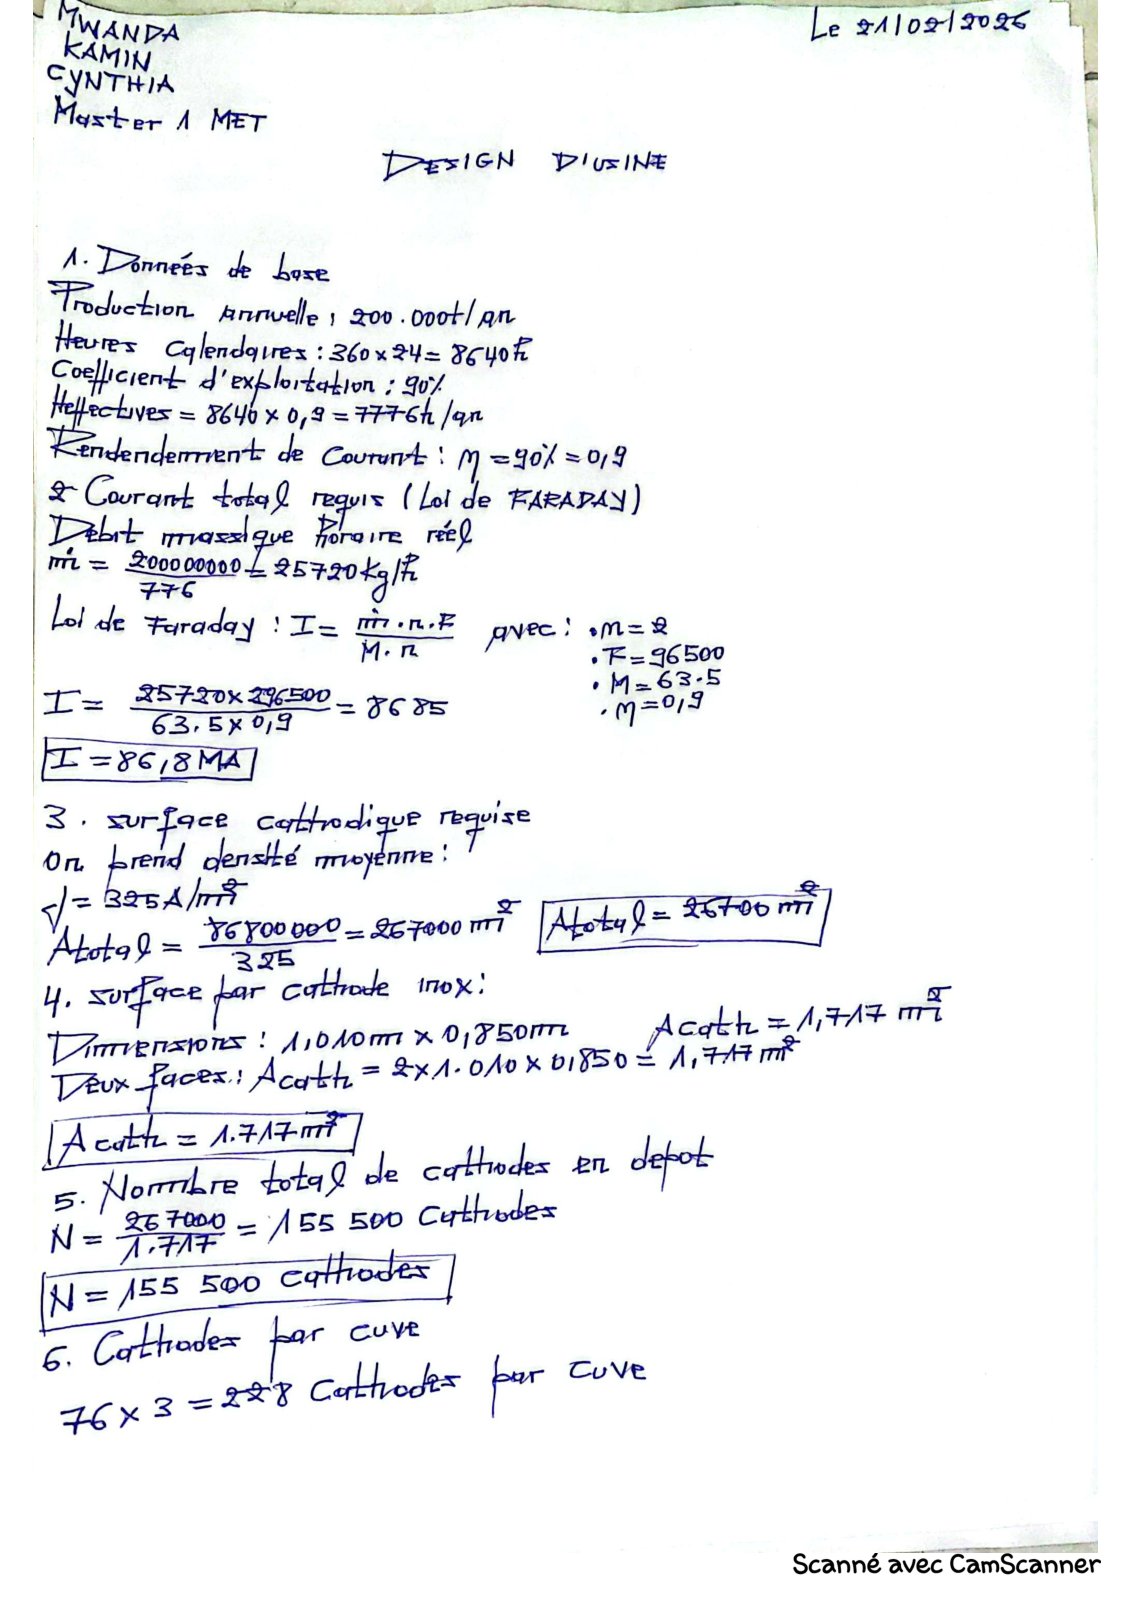 MWANDA
KAMIN
CYNTHIA
Master 1 MET
Le 21/02/2026
DESIGN D'USINE
1. Données de base
Production annuelle : 200.000t/an
Heures Calendaires : 360 x 24 = 8640 h
Coefficient d'exploitation : 90%
Heffectives = 8640 x 0,9 = 7776h/an
Rendendement de Courant : η = 90% = 0,9
2 Courant total requis (Loi de FARADAY)
Debit massique horaire réel
ṁ = 200000000/776 = 25720 kg/h
Loi de Faraday : I = ṁ.n.F/M.n avec : .n = 2
. F = 96500
. M = 63.5
. η = 0,9
I = 25720 x 296500/63.5 x 0,9 = 8685
I = 86,8 MA
3. surface cathodique requise
On prend densité moyenne :
J = 325 A/m²
Atotal = 86800000/325 = 267000 m² Atotal = 26700 m²
4. surface par cathode inox :
Dimensions : 1,010m x 0,850m Acath = 1,717 m²
Deux faces : Acath = 2 x 1.010 x 0,850 = 1,717 m²
Acath = 1.717 m²
5. Nombre total de cathodes en depot
N = 267000/1.717 = 155 500 Cathodes
N = 155 500 cathodes
6. Cathodes par cuve
76 x 3 = 228 Cathodes par cuve
Scanné avec CamScanner